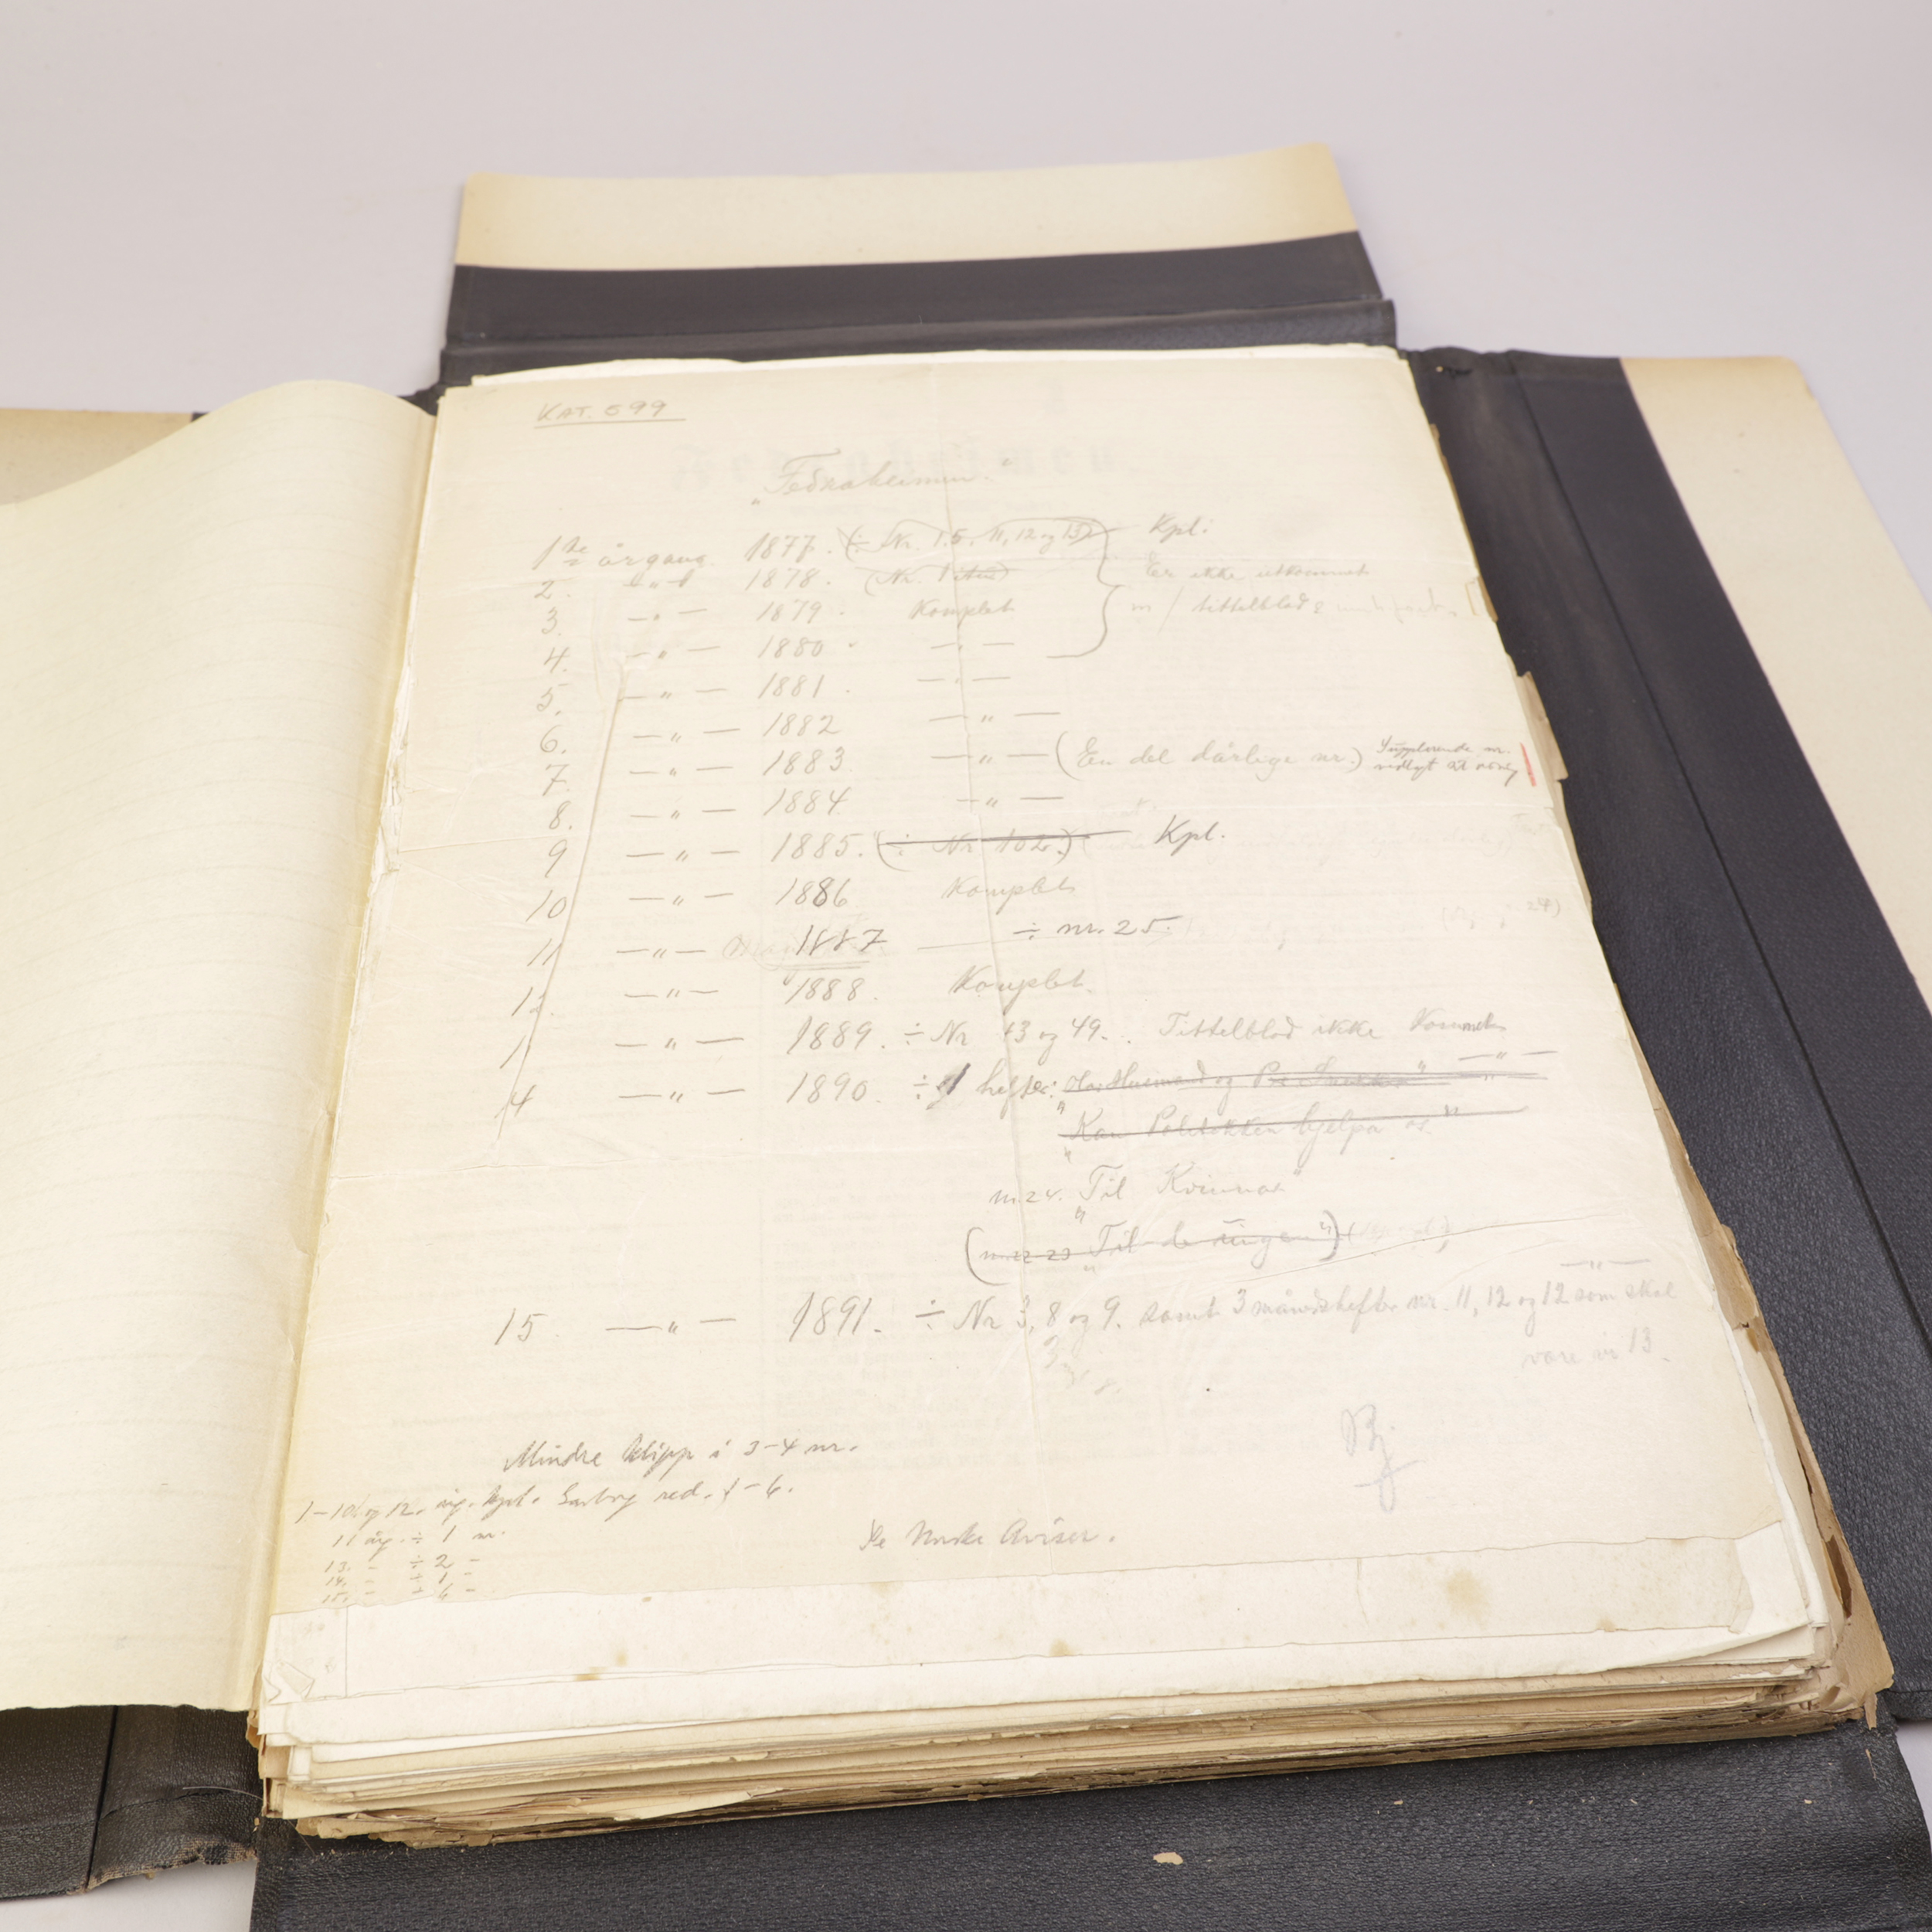 KAT. 599
"Fedraheimen."
1ste årgang. 1877. (÷ Nr. 1.5, 11, 12 og 13) Kpl:
2. —"— 1878. Er ikke utkommet
3. —"— 1879. Komplet m/ tittelblad &
4. —"— 1880. —"—
5. —"— 1881. —"—
6. —"— 1882 —"—
7. —"— 1883. —"— (En del dårlige nr.) Supplerende nr.
vedlagt
8. —"— 1884. —"—
9 —"— 1885. (÷ Nr 102.) Kpl.
10 —"— 1886 Komplet
11 —"— 1887 ÷ nr. 25.
12. —"— 1888. Komplet.
1 —"— 1889. ÷ Nr 43 og 49. Tittelblad ikke kommet
14 —"— 1890. ÷ 1 hefter: og —"—
"Kan Politikken hjelpa os"
nr. 24. "Til Kvinnor"
(nr. 22-23 "Til de ungen")
—"—
15. —"— 1891. ÷ Nr 3, 8 og 9. samt 3 månedshefter nr. 11, 12 og 12 som skal
være nr 13.
Mindre klipp i 3-4 nr.
1-10 og 12. årg. kpl. Garborg red. 1-6.
11 årg. ÷ 1 nr.
13. - ÷ 2 -
14. - ÷ 1 -
15. - ÷ 6 -
Se Norske Aviser.